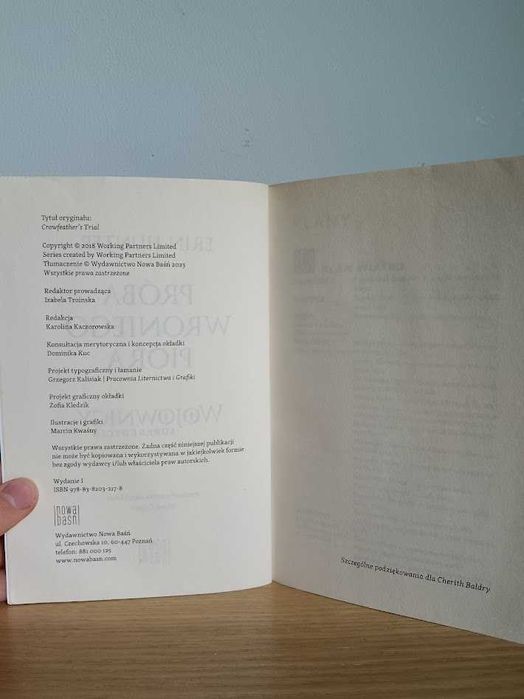 Tytuł oryginału:
Crowfeather's Trial
Copyright © 2018 Working Partners Limited
Series created by Working Partners Limited
Tłumaczenie © Wydawnictwo Nowa Baśń 2023
Wszystkie prawa zastrzeżone
Redaktor prowadząca
Izabela Troinska
Redakcja
Karolina Kaczorowska
Konsultacja merytoryczna i koncepcja okładki
Dominika Kuc
Projekt typograficzny i łamanie
Grzegorz Kalisiak | Pracownia Liternictwa i Grafiki
Projekt graficzny okładki
Zofia Kledzik
Ilustracje i grafiki
Marcin Kwaśny
Wszystkie prawa zastrzeżone. Żadna część niniejszej publikacji
nie może być kopiowana i wykorzystywana w jakiejkolwiek formie
bez zgody wydawcy i/lub właściciela praw autorskich.
Wydanie I
ISBN 978-83-8203-217-8
nowa
baśń
Wydawnictwo Nowa Baśń
ul. Czechowska 10, 60-447 Poznań
telefon: 881 000 125
www.nowabasn.com
Szczególne podziękowania dla Cherith Baldry
ERIN HUNTER
PRÓBA
WRONIEGO
PIÓRA
WOJOWNICY